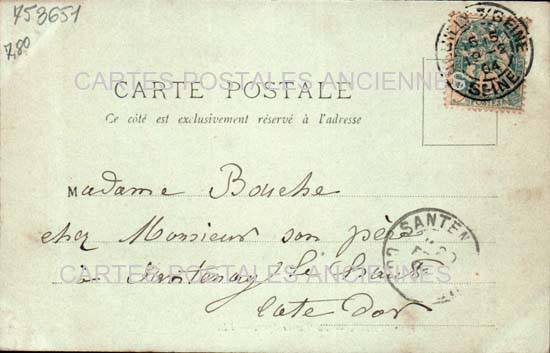 753651
7,80
S/SEINE
04
SEINE
CARTES POSTALES ANCIENNES
CARTE POSTALE
Ce côté est exclusivement réservé à l'adresse
Madame Bouche
chez Monsieur son père
SANTEN
CARTES POSTALES ANCIENNES
à Santenay
Cote d'or